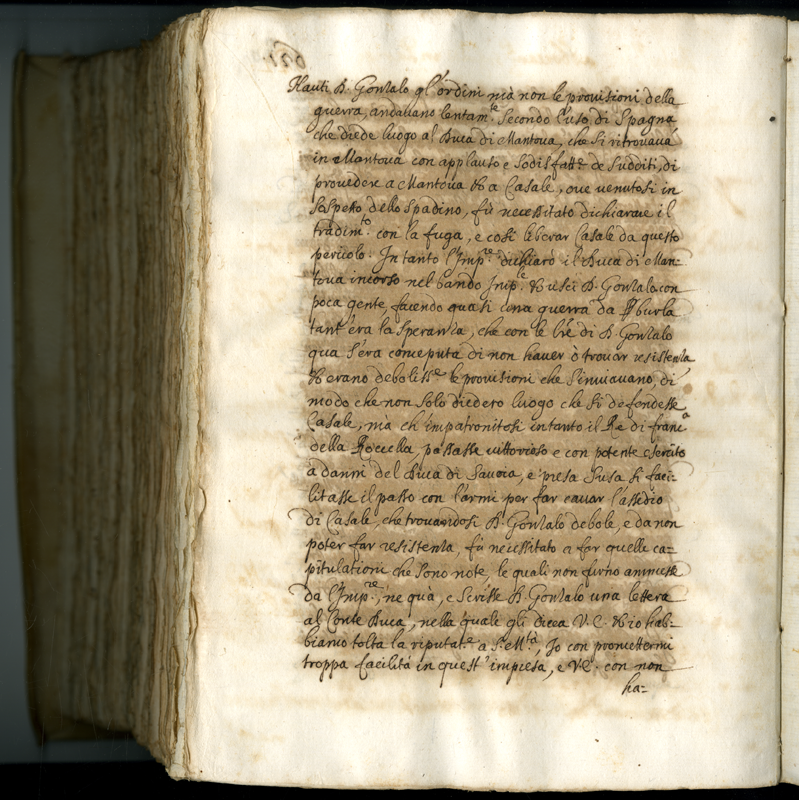 Hauti D. Gonzalo gl'ordini mà non le provisioni della
guerra, andauano lentam.te Secondo l'uso di Spagna
che diede luogo al Duca di Mantoua, che si ritrouaua
in Mantoua con applauso e sodisfatt.e de sudditi, di
prouedere a Mantoua & a Casale, oue uenutosi in
sospetto dello Spadino, fù necessitato dichiarare il
tradim.to con la fuga, e così liberar Casale da questo
pericolo. In tanto l'Imp.re dichiarò il Duca di Man=
toua incorso nel bando Imp.le & uscì D. Gonzalo con
poca gente, facendo quasi una guerra da burla
tant'era la speranza, che con le lre di D. Gonzalo
qua s'era conceputa di non hauer à trouar resistenza
& erano deboliss.e le provisioni che s'inuiauano, di
modo che non solo diedero luogo che si defendesse
Casale, mà ch'impatronitosi intanto il Re di franc.a
della Roccella, passasse uittorioso e con potente esercito
a danni del Duca di Sauoia, e presa Susa si faci=
litasse il passo con l'armi per far cauar l'assedio
di Casale, che trouandosi D. Gonzalo debole, e da non
poter far resistenza, fù necessitato a far quelle ca=
pitulationi che sono note, le quali non furno ammesse
da l'Imp.re, ne quà, e scrisse D. Gonzalo una lettera
al Conte Duca, nella quale gli dicea V.E. & io hab=
biamo tolta la riputat.e a S. M.tà, Io con promettermi
troppa facilità in quest'impresa, e V.E. con non
ha=